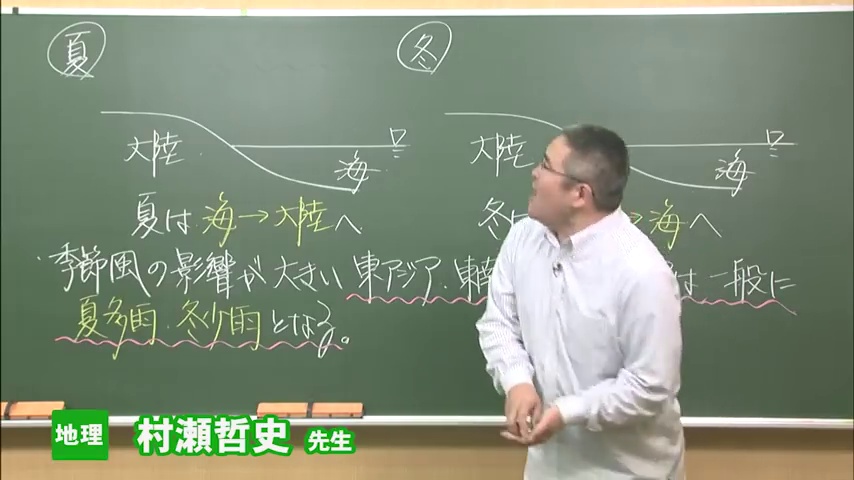 夏
冬
大陸
海
大陸
海
夏は 海→大陸へ
冬は →海へ
季節風の影響が大きい 東アジア・東南 は一般に
夏多雨・冬少雨となる。
地理 村瀬哲史 先生